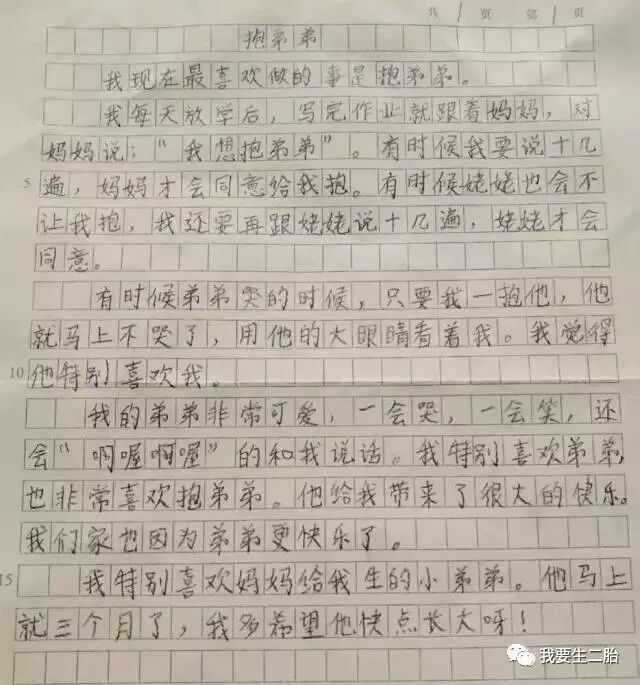 共 页 第 页
抱弟弟
我现在最喜欢做的事是抱弟弟。
我每天放学后，写完作业就跟着妈妈，对
妈妈说：“我想抱弟弟”。有时候我要说十几
5 遍，妈妈才会同意给我抱。有时候姥姥也会不
让我抱，我还要再跟姥姥说十几遍，姥姥才会
同意。
有时候弟弟哭的时候，只要我一抱他，他
就马上不哭了，用他的大眼睛看着我。我觉得
10 他特别喜欢我。
我的弟弟非常可爱，一会哭，一会笑，还
会“啊喔啊喔”的和我说话。我特别喜欢弟弟，
也非常喜欢抱弟弟。他给我带来了很大的快乐。
我们家也因为弟弟更快乐了。
15 我特别喜欢妈妈给我生的小弟弟。他马上
就三个月了，我多希望他快点长大呀！
我要生二胎